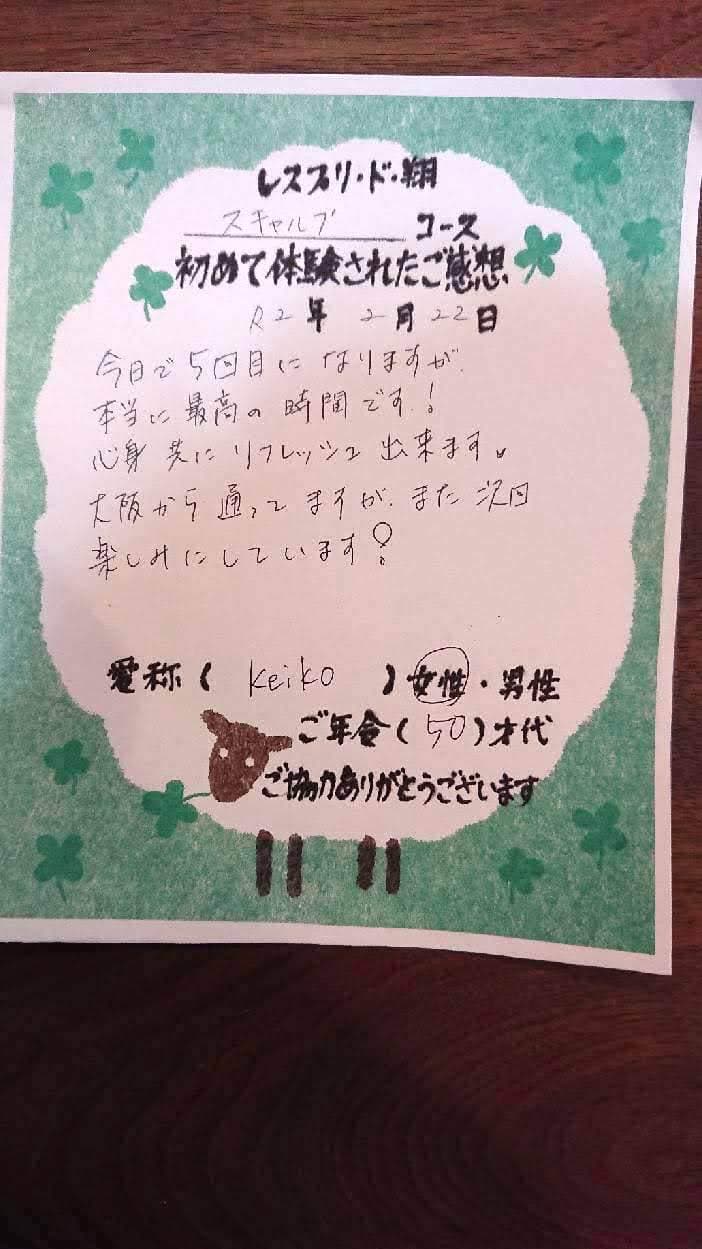 レスプリ・ド・翔
スキャルプ コース
初めて体験されたご感想
R2年 2月22日
今日で5回目になりますが、
本当に最高の時間です!
心身共にリフレッシュ出来ます。
大阪から通ってますが、また次回
楽しみにしています!
愛称( Keiko )女性・男性
ご年令(50)才代
ご協力ありがとうございます